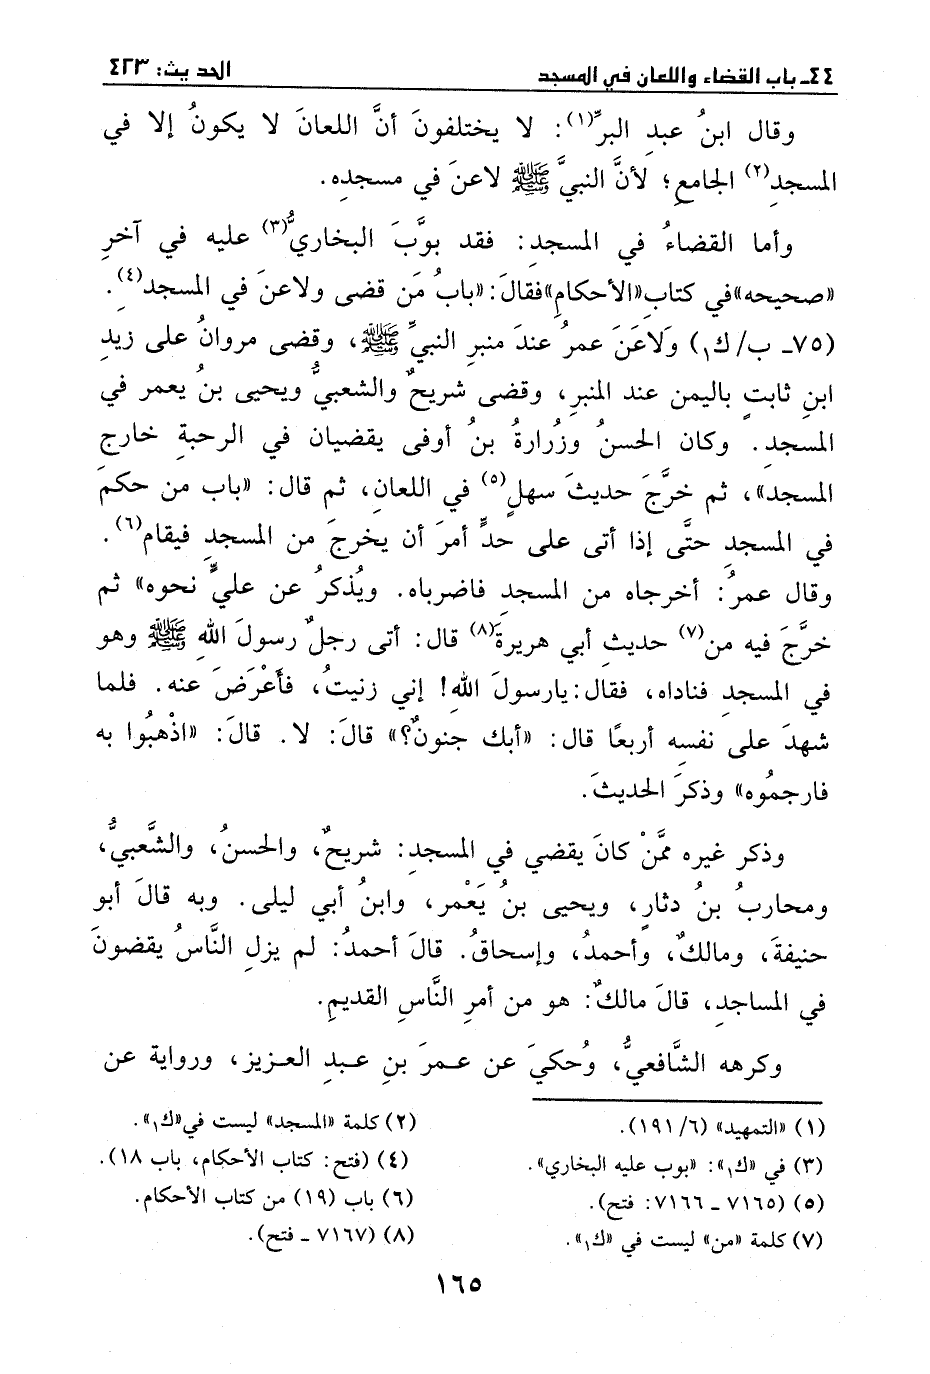 ٤٤ـ باب القضاء واللعان في المسجد الحديث: ٤٢٣
وقال ابنُ عبدِ البرِّ(١): لا يختلفونَ أنَّ اللعانَ لا يكونُ إلا في
المسجدِ(٢) الجامعِ؛ لأنَّ النبيَّ ﷺ لاعنَ في مسجدِه.
وأما القضاءُ في المسجدِ: فقد بوَّبَ البخاريُّ(٣) عليه في آخرِ
«صحيحه»في كتابِ«الأحكامِ»فقالَ:«بابُ مَن قضى ولاعنَ في المسجد(٤).
(٧٥ـ ب/ك١) وَلاَعَنَ عمرُ عندَ منبرِ النبيِّ ﷺ، وقضى مروانُ على زيدِ
ابنِ ثابتٍ باليمن عند المنبرِ، وقضى شريحٌ والشعبيُّ ويحيى بنُ يعمر في
المسجدِ. وكان الحسنُ وزُرارةُ بنُ أوفى يقضيان في الرحبةِ خارج
المسجد»، ثم خرَّجَ حديثَ سهلٍ(٥) في اللعانِ، ثم قال: «باب من حكمَ
في المسجدِ حتَّى إذا أتى على حدٍّ أمرَ أن يخرجَ من المسجدِ فيقام(٦).
وقال عمرُ: أخرجاه من المسجدِ فاضرباه. ويُذكرُ عن عليٍّ نحوه» ثم
خرَّجَ فيه من(٧) حديثِ أبي هريرةَ(٨) قال: أتى رجلٌ رسولَ اللهِ ﷺ وهو
في المسجدِ فناداه، فقال:يارسولَ اللهِ! إني زنيتُ، فأَعْرَضَ عنه. فلما
شهدَ على نفسِه أربعًا قال: «أبك جنونٌ؟» قالَ: لا. قالَ: «اذْهبُوا به
فارجمُوه» وذكرَ الحديثَ.
وذكر غيره ممَّنْ كانَ يقضي في المسجدِ: شريحٌ، والحسنُ، والشَّعبيُّ،
ومحاربُ بنُ دثارٍ، ويحيى بنُ يَعْمر، وابنُ أبي ليلى. وبه قالَ أبو
حنيفةَ، ومالكٌ، وأحمدُ، وإسحاقُ. قالَ أحمدُ: لم يزلِ النَّاسُ يقضونَ
في المساجدِ، قالَ مالكٌ: هو من أمرِ النَّاسِ القديمِ.
وكرهه الشَّافعيُّ، وحُكيَ عن عمرَ بنِ عبدِ العزيز، ورواية عن
(١) «التمهيد» (٦/ ١٩١).
(٢) كلمة «المسجد» ليست في«ك١».
(٣) في «ك١»: «بوب عليه البخاري».
(٤) (فتح: كتاب الأحكام، باب ١٨).
(٥) (٧١٦٥ ـ ٧١٦٦: فتح).
(٦) باب (١٩) من كتاب الأحكام.
(٧) كلمة «من» ليست في «ك١».
(٨) (٧١٦٧ ـ فتح).
١٦٥